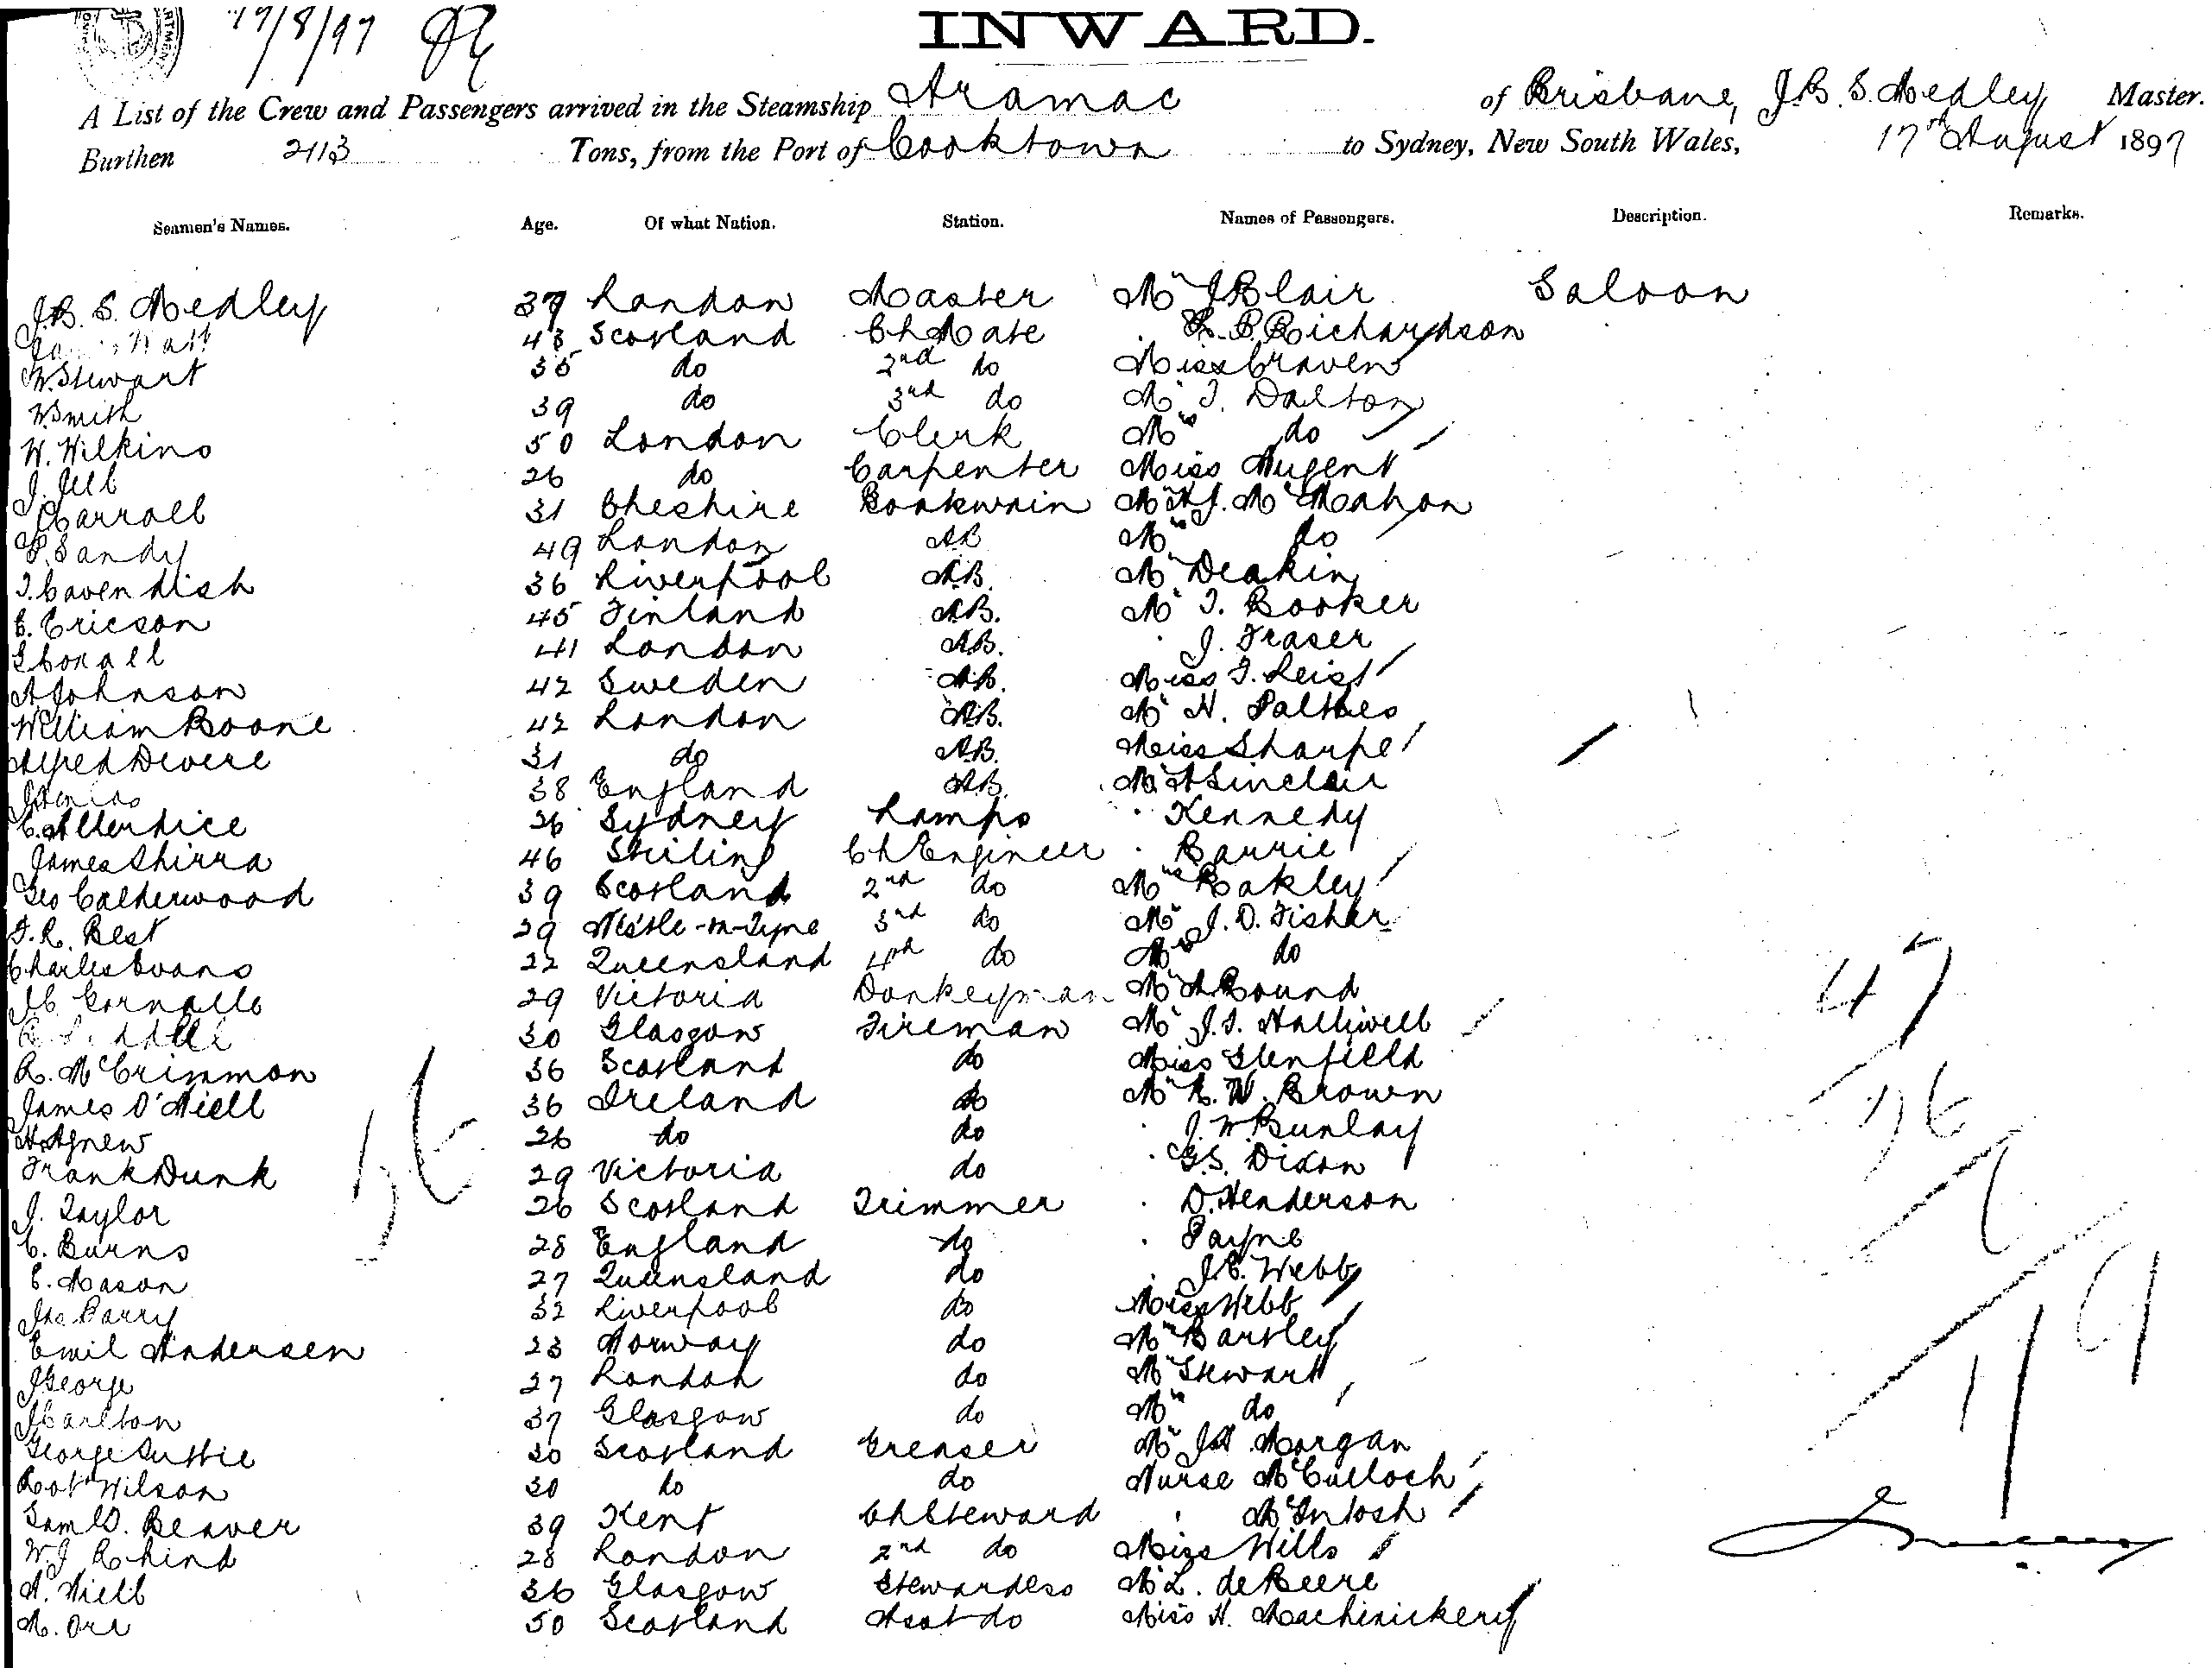 17/8/97
INWARD.
A List of the Crew and Passengers arrived in the Steamship Aramac of Brisbane, J.B.S. Medley Master.
Burthen 2113 Tons, from the Port of Cooktown to Sydney, New South Wales, 17th August 1897
Seamen's Names. Age. Of what Nation. Station. Names of Passengers. Description. Remarks.
J.B.S. Medley 37 London Master Mr J Blair Saloon
43 Scotland Ch Mate Richardson
W. Stewart 35 do 2nd do Miss Craven
W Smith 39 do 3rd do Mr T. Dalton
W. Wilkins 50 London Clerk Mrs do
J. Jell 26 do Carpenter Miss Nugent
J Carroll 31 Cheshire Boatswain Mr H.J. McMahon
P. Sandy 49 London AB Mrs do
T. Cavendish 36 Liverpool AB. Mr Deakin
E. Ericson 45 Finland AB. Mr T. Booker
G Coxall 41 London AB. J. Fraser
A Johnson 42 Sweden AB. Miss F. Leist
William Boone 42 London AB. Mr H. Palthes
Alfred Devere 31 do AB. Miss Sharpe
38 England AB. Mr A Sinclair
C. Allerdice 26 Sydney Lamps Kennedy
James Shirra 46 Stirling Ch Engineer Barrie
Geo Calderwood 39 Scotland 2nd do Mrs Oakley
F.R. Best 29 Ncstle-on-Tyne 3rd do Mr J.D. Fisher
Charles Evans 22 Queensland 4th do Mrs do
29 Victoria Donkeyman Mr A Round
30 Glasgow Fireman Mr J.S. Halliwell
R. McCrimmon 36 Scotland do Miss Glenfield
James O'Niell 36 Ireland do Mr R.W. Brown
H. Agnew 26 do do J.W. Bunlay
Frank Dunk 29 Victoria do G.S. Dixon
J. Taylor 26 Scotland Trimmer D. Henderson
C. Burns 28 England do Payne
E. Mason 27 Queensland do J.E. Webb
Jas Parry 32 Liverpool do Miss Webb
Emil Andersen 23 Norway do Mr Bartley
J George 27 London do Mr Stewart
J Carlton 37 Glasgow do Mrs do
George Suttie 30 Scotland Greaser Mr J.A. Morgan
Robt Wilson 30 do do Nurse McCulloch
Saml D. Beaver 39 Kent Ch Steward McIntosh
W.J. Rhind 28 London 2nd do Miss Wills
A. Niell 36 Glasgow Stewardess Mr L. de Beere
M. Orr 50 Scotland Asst do Miss H. Machinickery
47